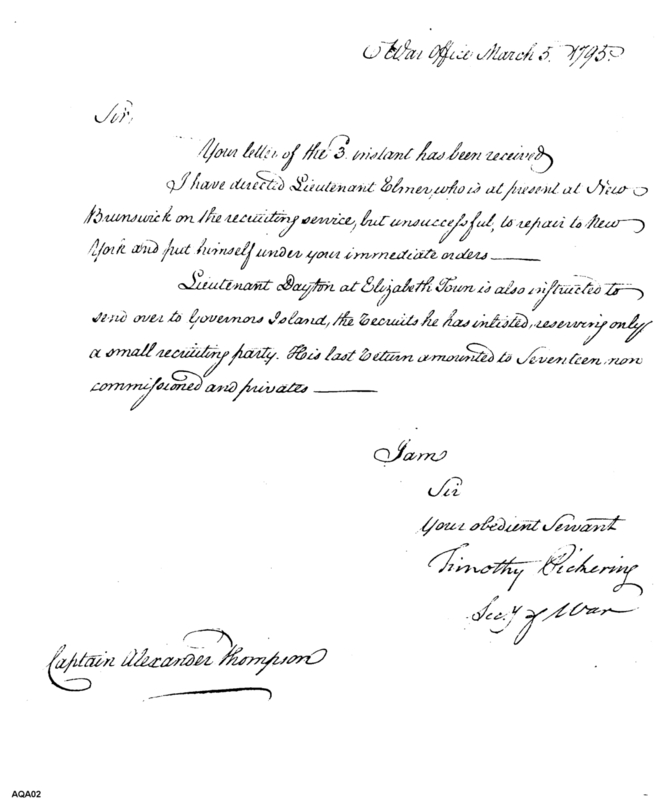 War Office March 5. 1795.
Sir,
Your letter of the 3. instant has been received
I have directed Lieutenant Elmer, who is at present at New
Brunswick on the recruiting service, but unsuccessful, to repair to New
York and put himself under your immediate orders —
Lieutenant Dayton at Elizabeth Town is also instructed to
send over to Governors Island, the recruits he has inlisted, reserving only
a small recruiting party. His last return amounted to Seventeen non
commissioned and privates —
I am
Sir
Your obedient Servant
Timothy Pickering
Secy of War
Captain Alexander Thompson
AQA02